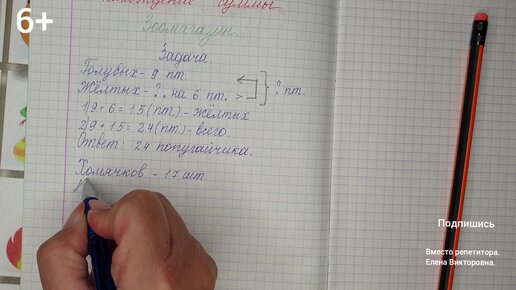 6+
нахождение суммы
Зоомагазин.
Задача.
Голубых - 9 пт.
Жёлтых - ?, на 6 пт. >
? пт.
1) 9 + 6 = 15 (пт.) - жёлтых
2) 9 + 15 = 24 (пт.) - всего.
Ответ: 24 попугайчика.
Хомячков - 17 шт
Подпишись
Вместо репетитора.
Елена Викторовна.